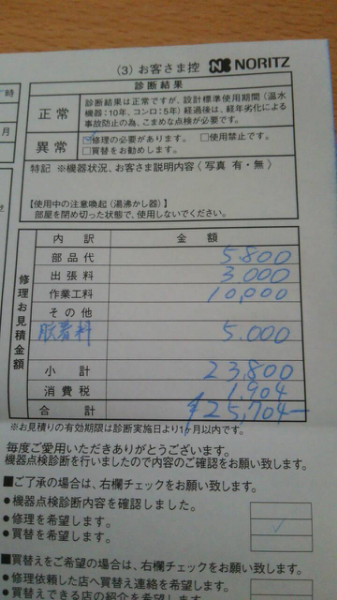 (3) お客さま控 NORITZ
診断結果
正常
診断結果は正常ですが、設計標準使用期間(温水
機器:10年、コンロ:5年)経過後は、経年劣化による
事故防止の為、こまめな点検が必要です。
異常
☑修理の必要があります。 □使用禁止です。
□買替をお勧めします。
特記 ※機器状況、お客さま説明内容(写真 有・無)
【使用中の注意喚起(湯沸かし器)】
部屋を閉め切った状態で、使用しないでください。
修理お見積金額
内訳 金額
部品代 5800
出張料 3,000
作業工料 10,000
その他
脱着料 5,000
小計 23,800
消費税 1,904
合計 ¥25,704-
※お見積りの有効期限は診断実施日より1ヶ月以内です。
毎度ご愛用いただきありがとうございます。
機器点検診断を行いましたので内容のご確認をお願い致します。
■ご了承の場合は、右欄チェックをお願い致します。
●機器点検診断内容を確認しました。
●修理を希望します。 ✓
●買替を希望します。
■買替えをご希望の場合は、右欄チェックをお願い致します。
●修理依頼した店へ買替え連絡を希望します。
●買替えできる店の紹介を希望します。